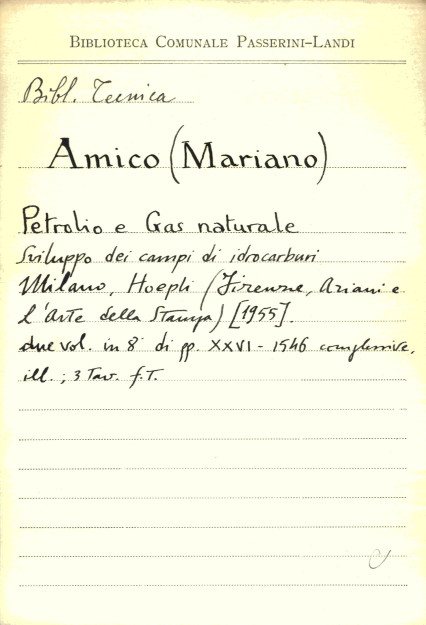 BIBLIOTECA COMUNALE PASSERINI-LANDI
Bibl. Tecnica
Amico (Mariano)
Petrolio e Gas naturale
Sviluppo dei campi di idrocarburi
Milano, Hoepli (Firenze, Ariani e
l'Arte della Stampa) [1955].
due vol. in 8° di pp. XXVI - 1546 complessive,
ill.; 3 Tav. f.T.